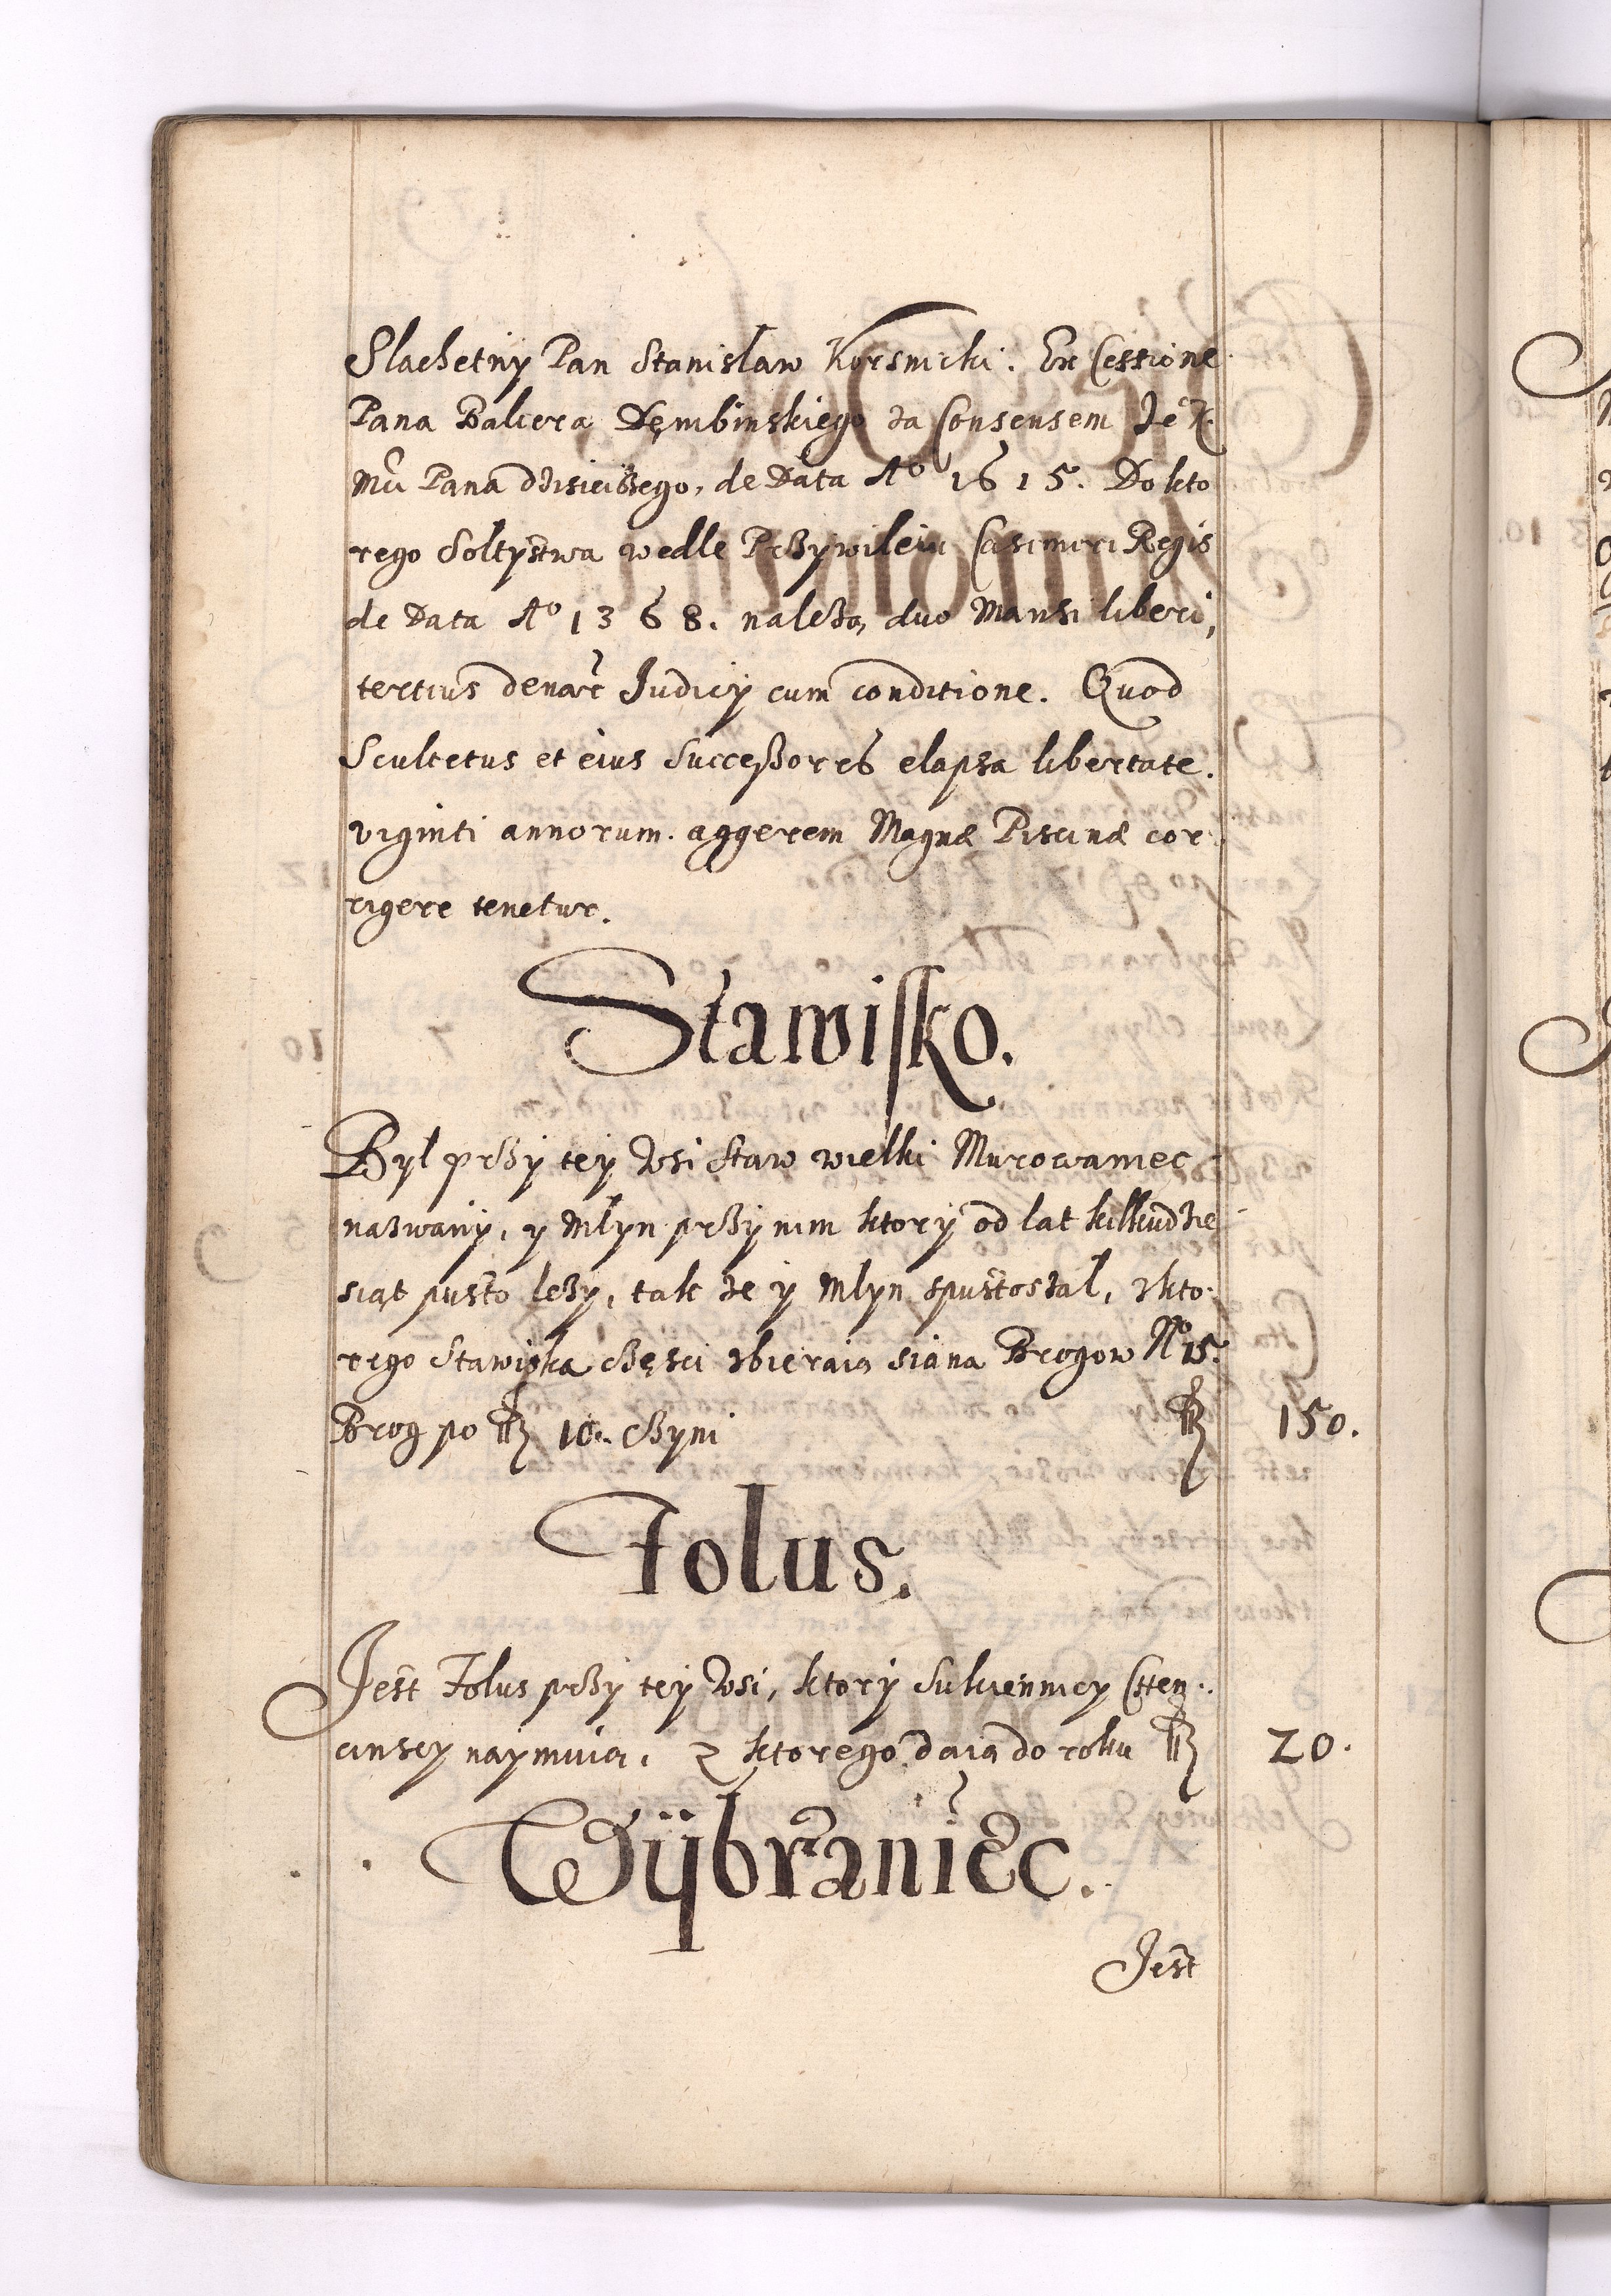 Slachetny Pan Stanislaw Korsnicki. Ex Cessione
Pana Balcera Dęmbinskiego za Consensem Je° K.
Mći Pana dzisieiszego, de Data A° 1615. Do kto
rego Soltystwa wedle Przywileiu Casimiri Regis
de Data A° 1368. należą, duo Mansi liberi,
tertius denar Judicij cum conditione. Quod
Scultetus et eius Successores elapsa libertate.
viginti annorum. aggerem Magnæ Piscinæ cor
rigere tenetur.
Stawisko.
Byl przy tey Wsi Staw wielki Murowaniec
nazwany, y Mlyn przy nim ktory od lat kilkudzie
siąt pusto leży, tak że y Mlyn spustoszal, z kto
rego Stawiska części zbieraią siana Brogow N° 15.
Brog po fl 10. czyni fl 150.
Folus.
Jest Folus przy tey Wsi, ktory Sukiennicy Czten
cinscy naymuią, z ktorego daią do roku fl 20.
Wÿbraniec.
Jest